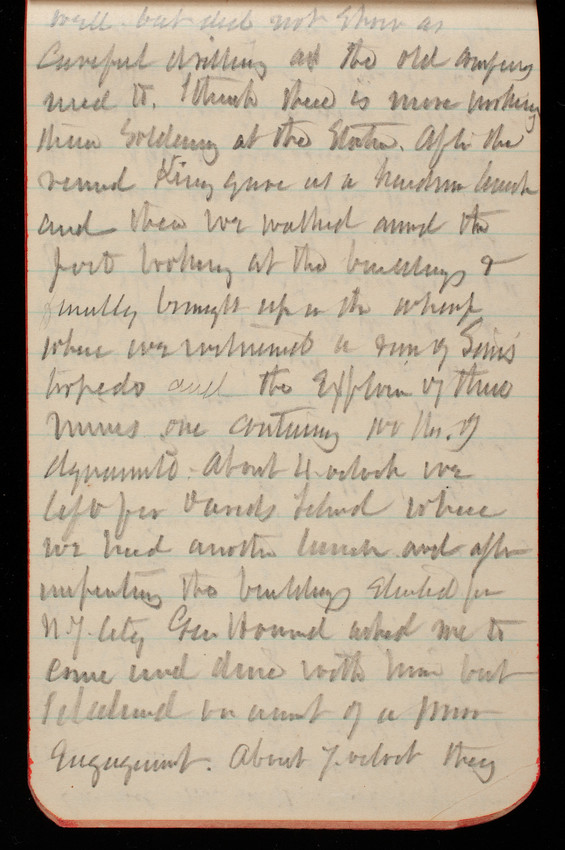 well but did not show as
careful drilling as the old companys
used to. I think there is more working
than Soldering at the Station. After the
review King gave us a handsome lunch
and then we walked around the
fort looking at the buildings &
finally brought up on the wharf
where we witnessed a run of Sims
torpedo and the Explosion of three
mines one containing 100 lbs. of
dynamite. About 4 oclock we
left for Davids Island where
we had another lunch and after
inspecting the buildings started for
N.Y. City Gen Howard asked me to
come and dine with him but
I declined on account of a prior
Engagement. About 7 oclock they